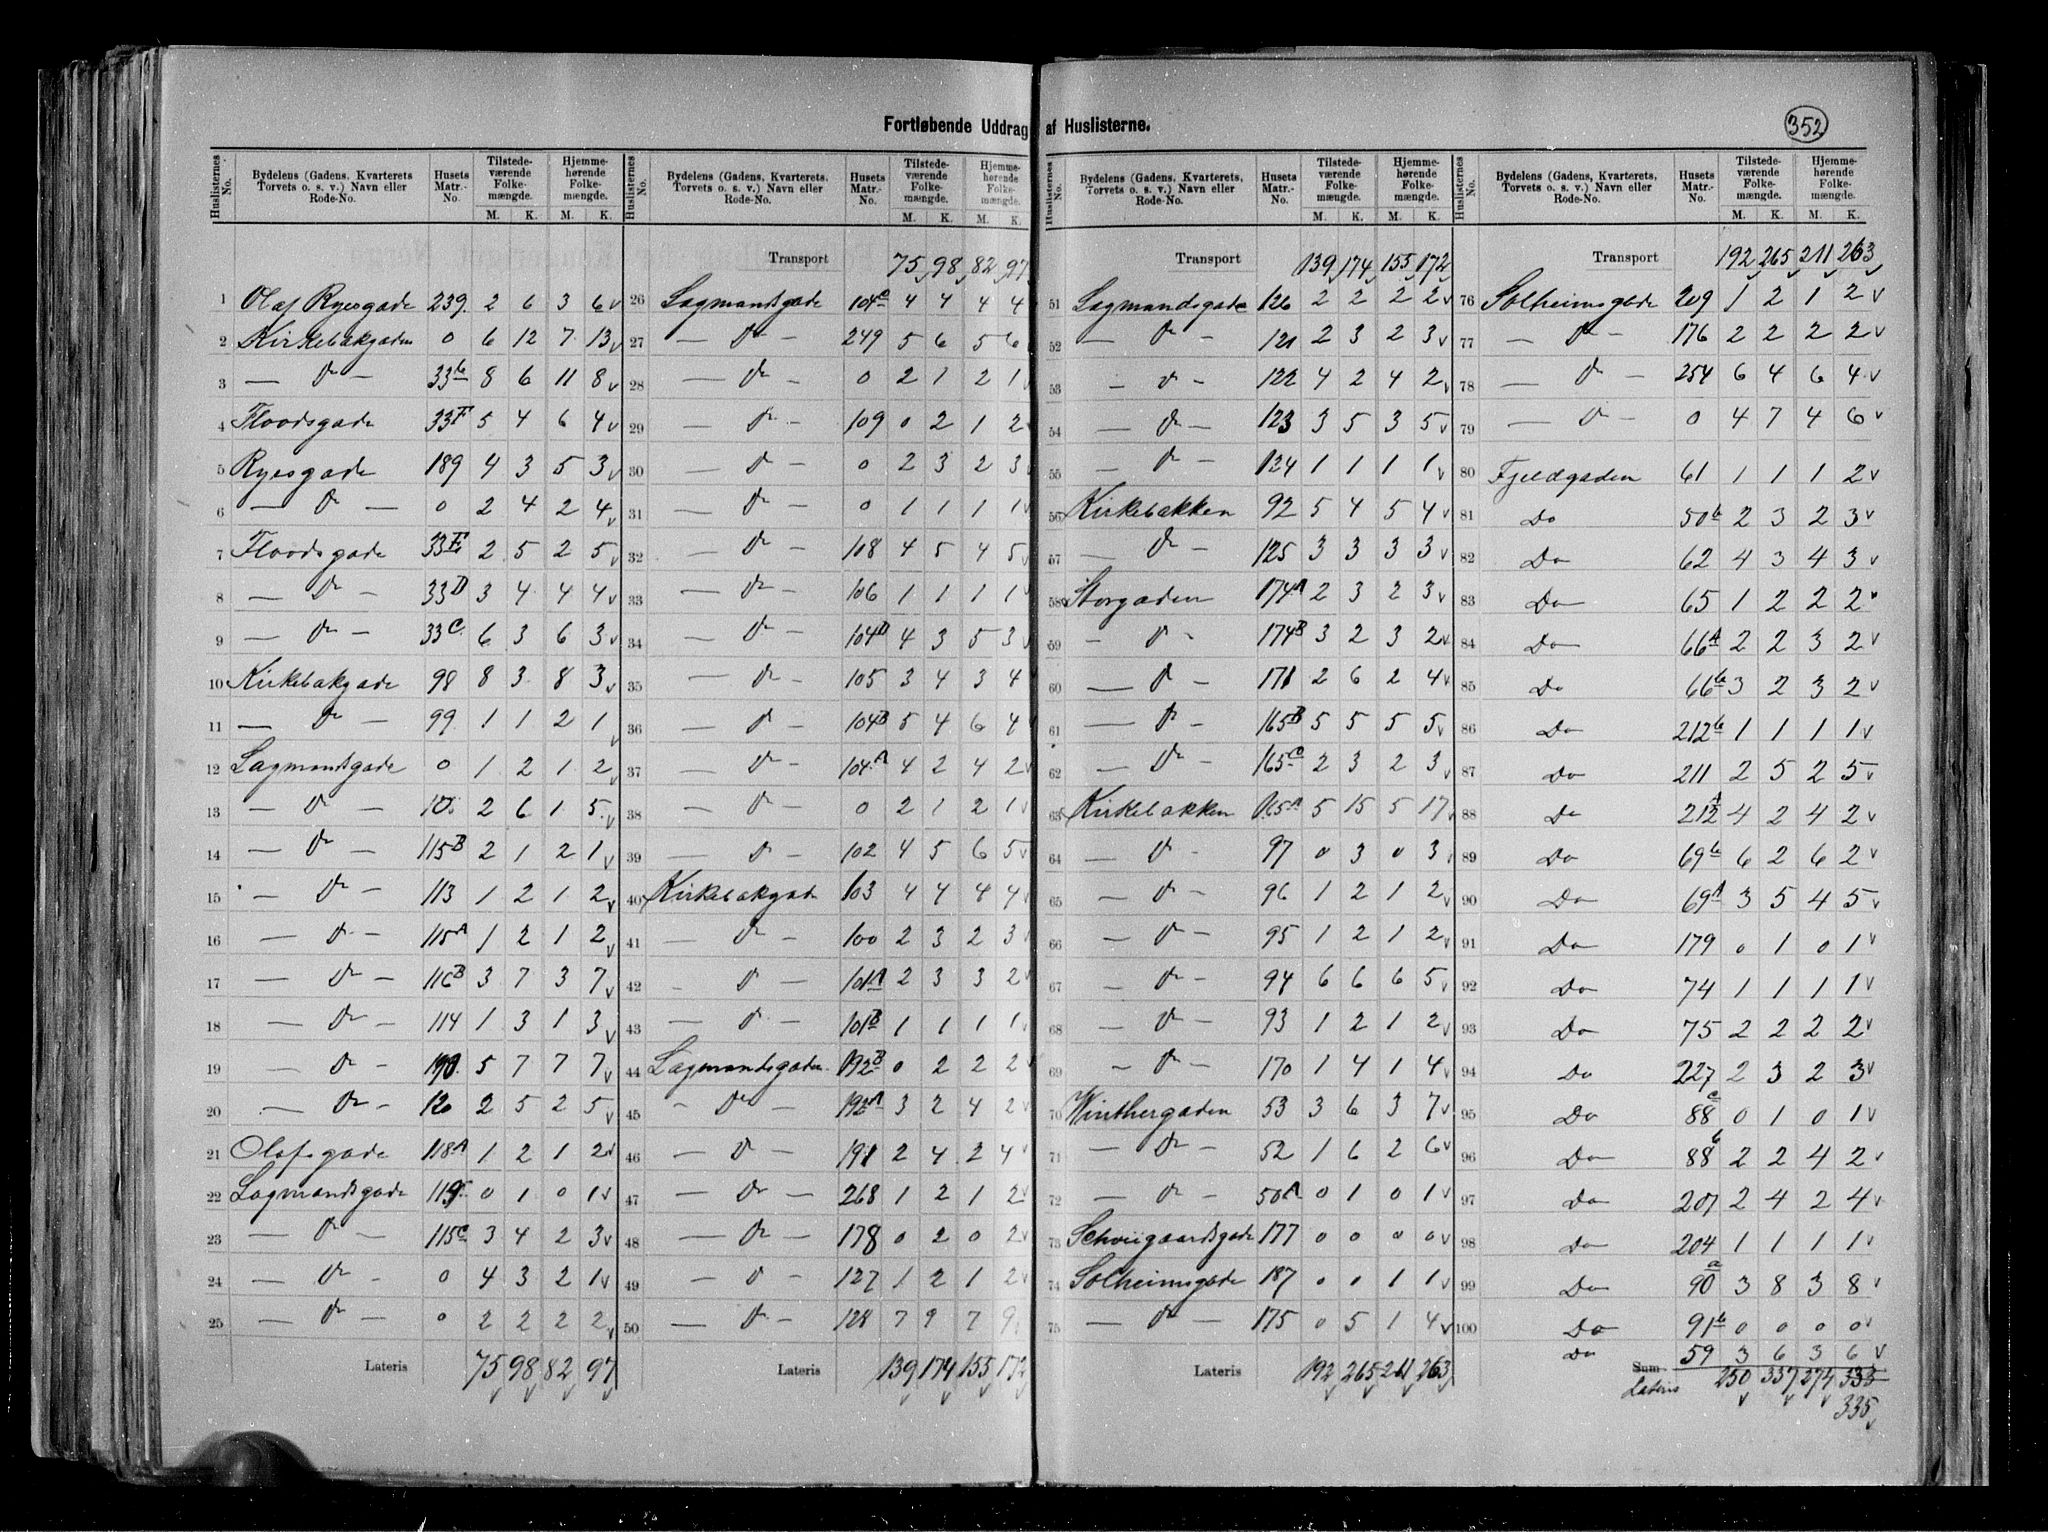 Fortløbende Uddrag af Huslisterne.
352
Huslisternes No. Bydelens (Gadens, Kvarterets, Torvets o. s. v.) Navn eller Rode-No. Husets Matr.-No. Tilstedeværende Folkemængde. M. K. Hjemmehørende Folkemængde. M. K.
1 Olaf Ryesgade 239. 2 6 3 6
2 Kirkebakgaden 0 6 12 7 13
3 — Do — 33b 8 6 11 8
4 Floodsgade 33F 5 4 6 4
5 Ryesgade 189 4 3 5 3
6 — Do — 0 2 4 2 4
7 Floodsgade 33E 2 5 2 5
8 — Do — 33D 3 4 4 4
9 — Do — 33C 6 3 6 3
10 Kirkebakgade 98 8 3 8 3
11 — Do — 99 1 1 2 1
12 Lagmandsgade 0 1 2 1 2
13 — Do — 2 6 1 5
14 — Do — 115B 2 1 2 1
15 — Do — 113 1 2 1 2
16 — Do — 115A 1 2 1 2
17 — Do — 116B 3 7 3 7
18 — Do — 114 1 3 1 3
19 — Do — 190 5 7 7 7
20 — Do — 120 2 5 2 5
21 Olafsgade 118A 1 2 1 2
22 Lagmandsgade 119 0 1 0 1
23 — Do — 115C 3 4 2 3
24 — Do — 0 4 3 2 1
25 — Do — 0 2 2 2 2
Lateris 75 98 82 97
Huslisternes No. Bydelens (Gadens, Kvarterets, Torvets o. s. v.) Navn eller Rode-No. Husets Matr.-No. Tilstedeværende Folkemængde. M. K. Hjemmehørende Folkemængde. M. K.
Transport 75 98 82 97
26 Lagmandsgade 104C 4 4 4 4
27 — Do — 249 5 6 5 6
28 — Do — 0 2 1 2 1
29 — Do — 109 0 2 1 2
30 — Do — 0 2 3 2 3
31 — Do — 0 1 1 1 1
32 — Do — 108 4 5 4 5
33 — Do — 106 1 1 1 1
34 — Do — 104D 4 3 5 3
35 — Do — 105 3 4 3 4
36 — Do — 104B 5 4 6 4
37 — Do — 104A 4 2 4 2
38 — Do — 0 2 1 2 1
39 — Do — 102 4 5 6 5
40 Kirkebakgade 103 4 4 4 4
41 — Do — 100 2 3 2 3
42 — Do — 101A 2 3 3 2
43 — Do — 101B 1 1 1 1
44 Lagmandsgaden 192B 0 2 2 2
45 — Do — 192A 3 2 4 2
46 — Do — 191 2 4 2 4
47 — Do — 268 1 2 1 2
48 — Do — 178 0 2 0 2
49 — Do — 127 1 2 1 2
50 — Do — 128 7 9 7 9
Lateris 139 174 155 172
Huslisternes No. Bydelens (Gadens, Kvarterets, Torvets o. s. v.) Navn eller Rode-No. Husets Matr.-No. Tilstedeværende Folkemængde. M. K. Hjemmehørende Folkemængde. M. K.
Transport 139 174 155 172
51 Lagmandsgade 126 2 2 2 2
52 — Do — 121 2 3 2 3
53 — Do — 122 4 2 4 2
54 — Do — 123 3 5 3 5
55 — Do — 124 1 1 1 1
56 Kirkebakken 92 5 4 5 4
57 — Do — 125 3 3 3 3
58 Storgaden 174A 2 3 2 3
59 — Do — 174B 3 2 3 2
60 — Do — 171 2 6 2 4
61 — Do — 165B 5 5 5 5
62 — Do — 165C 2 3 2 3
63 Kirkebakken 165A 5 15 5 17
64 — Do — 97 0 3 0 3
65 — Do — 96 1 2 1 2
66 — Do — 95 1 2 1 2
67 — Do — 94 6 6 6 5
68 — Do — 93 1 2 1 2
69 — Do — 170 1 4 1 4
70 Winthergaden 53 3 6 3 7
71 — Do — 52 1 6 2 6
72 — Do — 50A 0 1 0 1
73 Schviigaardsgade 177 0 0 0 0
74 Solheimsgade 187 0 0 1 1
75 — Do — 175 0 5 1 4
Lateris 192 265 211 263
Huslisternes No. Bydelens (Gadens, Kvarterets, Torvets o. s. v.) Navn eller Rode-No. Husets Matr.-No. Tilstedeværende Folkemængde. M. K. Hjemmehørende Folkemængde. M. K.
Transport 192 265 211 263
76 Solheimsgade 209 1 2 1 2
77 — Do — 176 2 2 2 2
78 — Do — 254 6 4 6 4
79 — Do — 0 4 7 4 6
80 Fjeldgaden 61 1 1 1 2
81 Do 50b 2 3 2 3
82 Do 62 4 3 4 3
83 Do 65 1 2 2 2
84 Do 66A 2 2 3 2
85 Do 66b 3 2 3 2
86 Do 212b 1 1 1 1
87 Do 211 2 5 2 5
88 Do 212A 4 2 4 2
89 Do 69b 6 2 6 2
90 Do 69A 3 5 4 5
91 Do 179 0 1 0 1
92 Do 74 1 1 1 1
93 Do 75 2 2 2 2
94 Do 227 2 3 2 3
95 Do 88c 0 1 0 1
96 Do 88b 2 2 4 2
97 Do 207 2 4 2 4
98 Do 204 1 1 1 1
99 Do 90a 3 8 3 8
100 Do 91b 0 0 0 0
Do 59 3 6 3 6
Sum Lateris 250 337 274 333
335